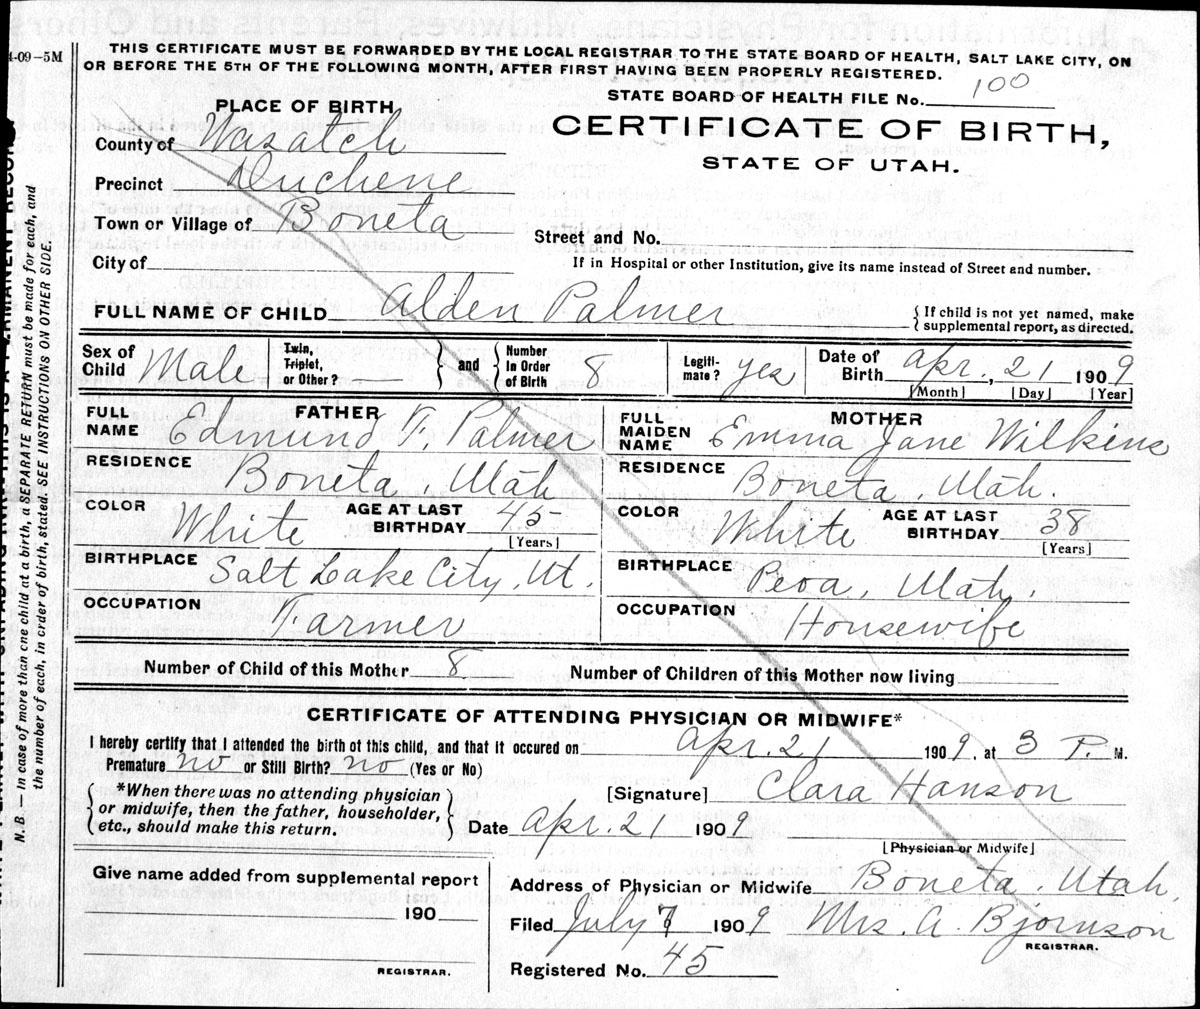 4-09-5M
THIS CERTIFICATE MUST BE FORWARDED BY THE LOCAL REGISTRAR TO THE STATE BOARD OF HEALTH, SALT LAKE CITY, ON
OR BEFORE THE 5TH OF THE FOLLOWING MONTH, AFTER FIRST HAVING BEEN PROPERLY REGISTERED.
STATE BOARD OF HEALTH FILE No. 100
PLACE OF BIRTH,
CERTIFICATE OF BIRTH,
STATE OF UTAH.
County of Wasatch
Precinct Duchene
Town or Village of Boneta
Street and No.
City of
If in Hospital or other Institution, give its name instead of Street and number.
FULL NAME OF CHILD Alden Palmer { If child is not yet named, make
supplemental report, as directed.
Sex of Child Male Twin, Triplet, or Other? — } and { Number in Order of Birth 8 Legitimate? yes Date of Birth Apr., 21 1909
[Month] [Day] [Year]
FULL NAME FATHER Edmund F. Palmer
RESIDENCE Boneta, Utah
COLOR White AGE AT LAST BIRTHDAY 45
[Years]
BIRTHPLACE Salt Lake City, Ut.
OCCUPATION Farmer
FULL MAIDEN NAME MOTHER Emma Jane Wilkins
RESIDENCE Boneta, Utah.
COLOR White AGE AT LAST BIRTHDAY 38
[Years]
BIRTHPLACE Peoa, Utah.
OCCUPATION Housewife
Number of Child of this Mother 8 Number of Children of this Mother now living
CERTIFICATE OF ATTENDING PHYSICIAN OR MIDWIFE*
I hereby certify that I attended the birth of this child, and that it occured on Apr. 21 1909, at 3 P. M.
Premature no or Still Birth? no (Yes or No)
{ *When there was no attending physician
or midwife, then the father, householder,
etc., should make this return. }
[Signature] Clara Hanson
Date Apr. 21 1909
[Physician or Midwife]
Give name added from supplemental report
190
REGISTRAR.
Address of Physician or Midwife Boneta, Utah,
Filed July 7 1909 Mrs. A. Bjornson
REGISTRAR.
Registered No. 45
N. B. — In case of more than one child at a birth, a SEPARATE RETURN must be made for each, and
the number of each, in order of birth, stated. SEE INSTRUCTIONS ON OTHER SIDE.